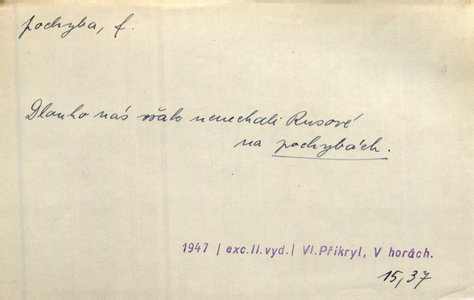 pochyba, f.
Dlouho nás však nenechali Rusové
na pochybách.
1947 | exc.II.vyd.| Vl.Přikryl, V horách.
15,37